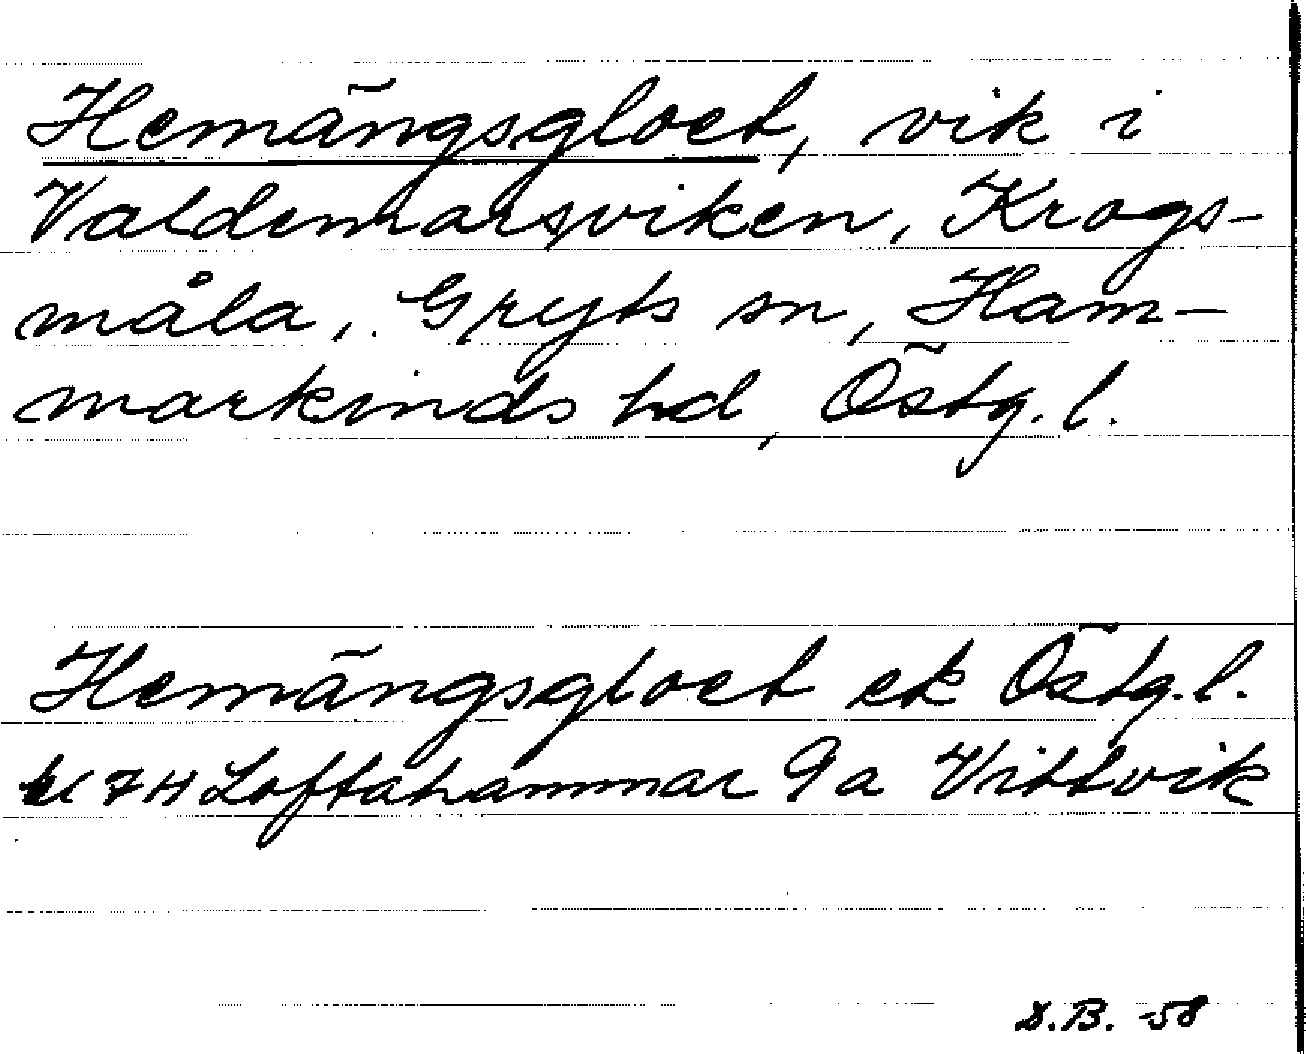 Hemängsgloet, vik i
Valdemarsviken, Krogs-
måla, Gryts sn, Ham-
markinds hd, Östg. l.
Hemängsgloet ek Östg. l.
Loftahammar 9a Vittvik
D.B. -58